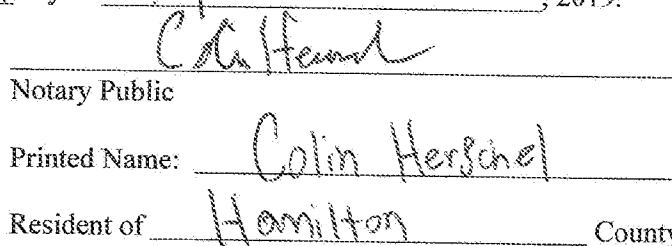 , 2019.
Notary Public
Printed Name: Colin Herschel
Resident of Hamilton County